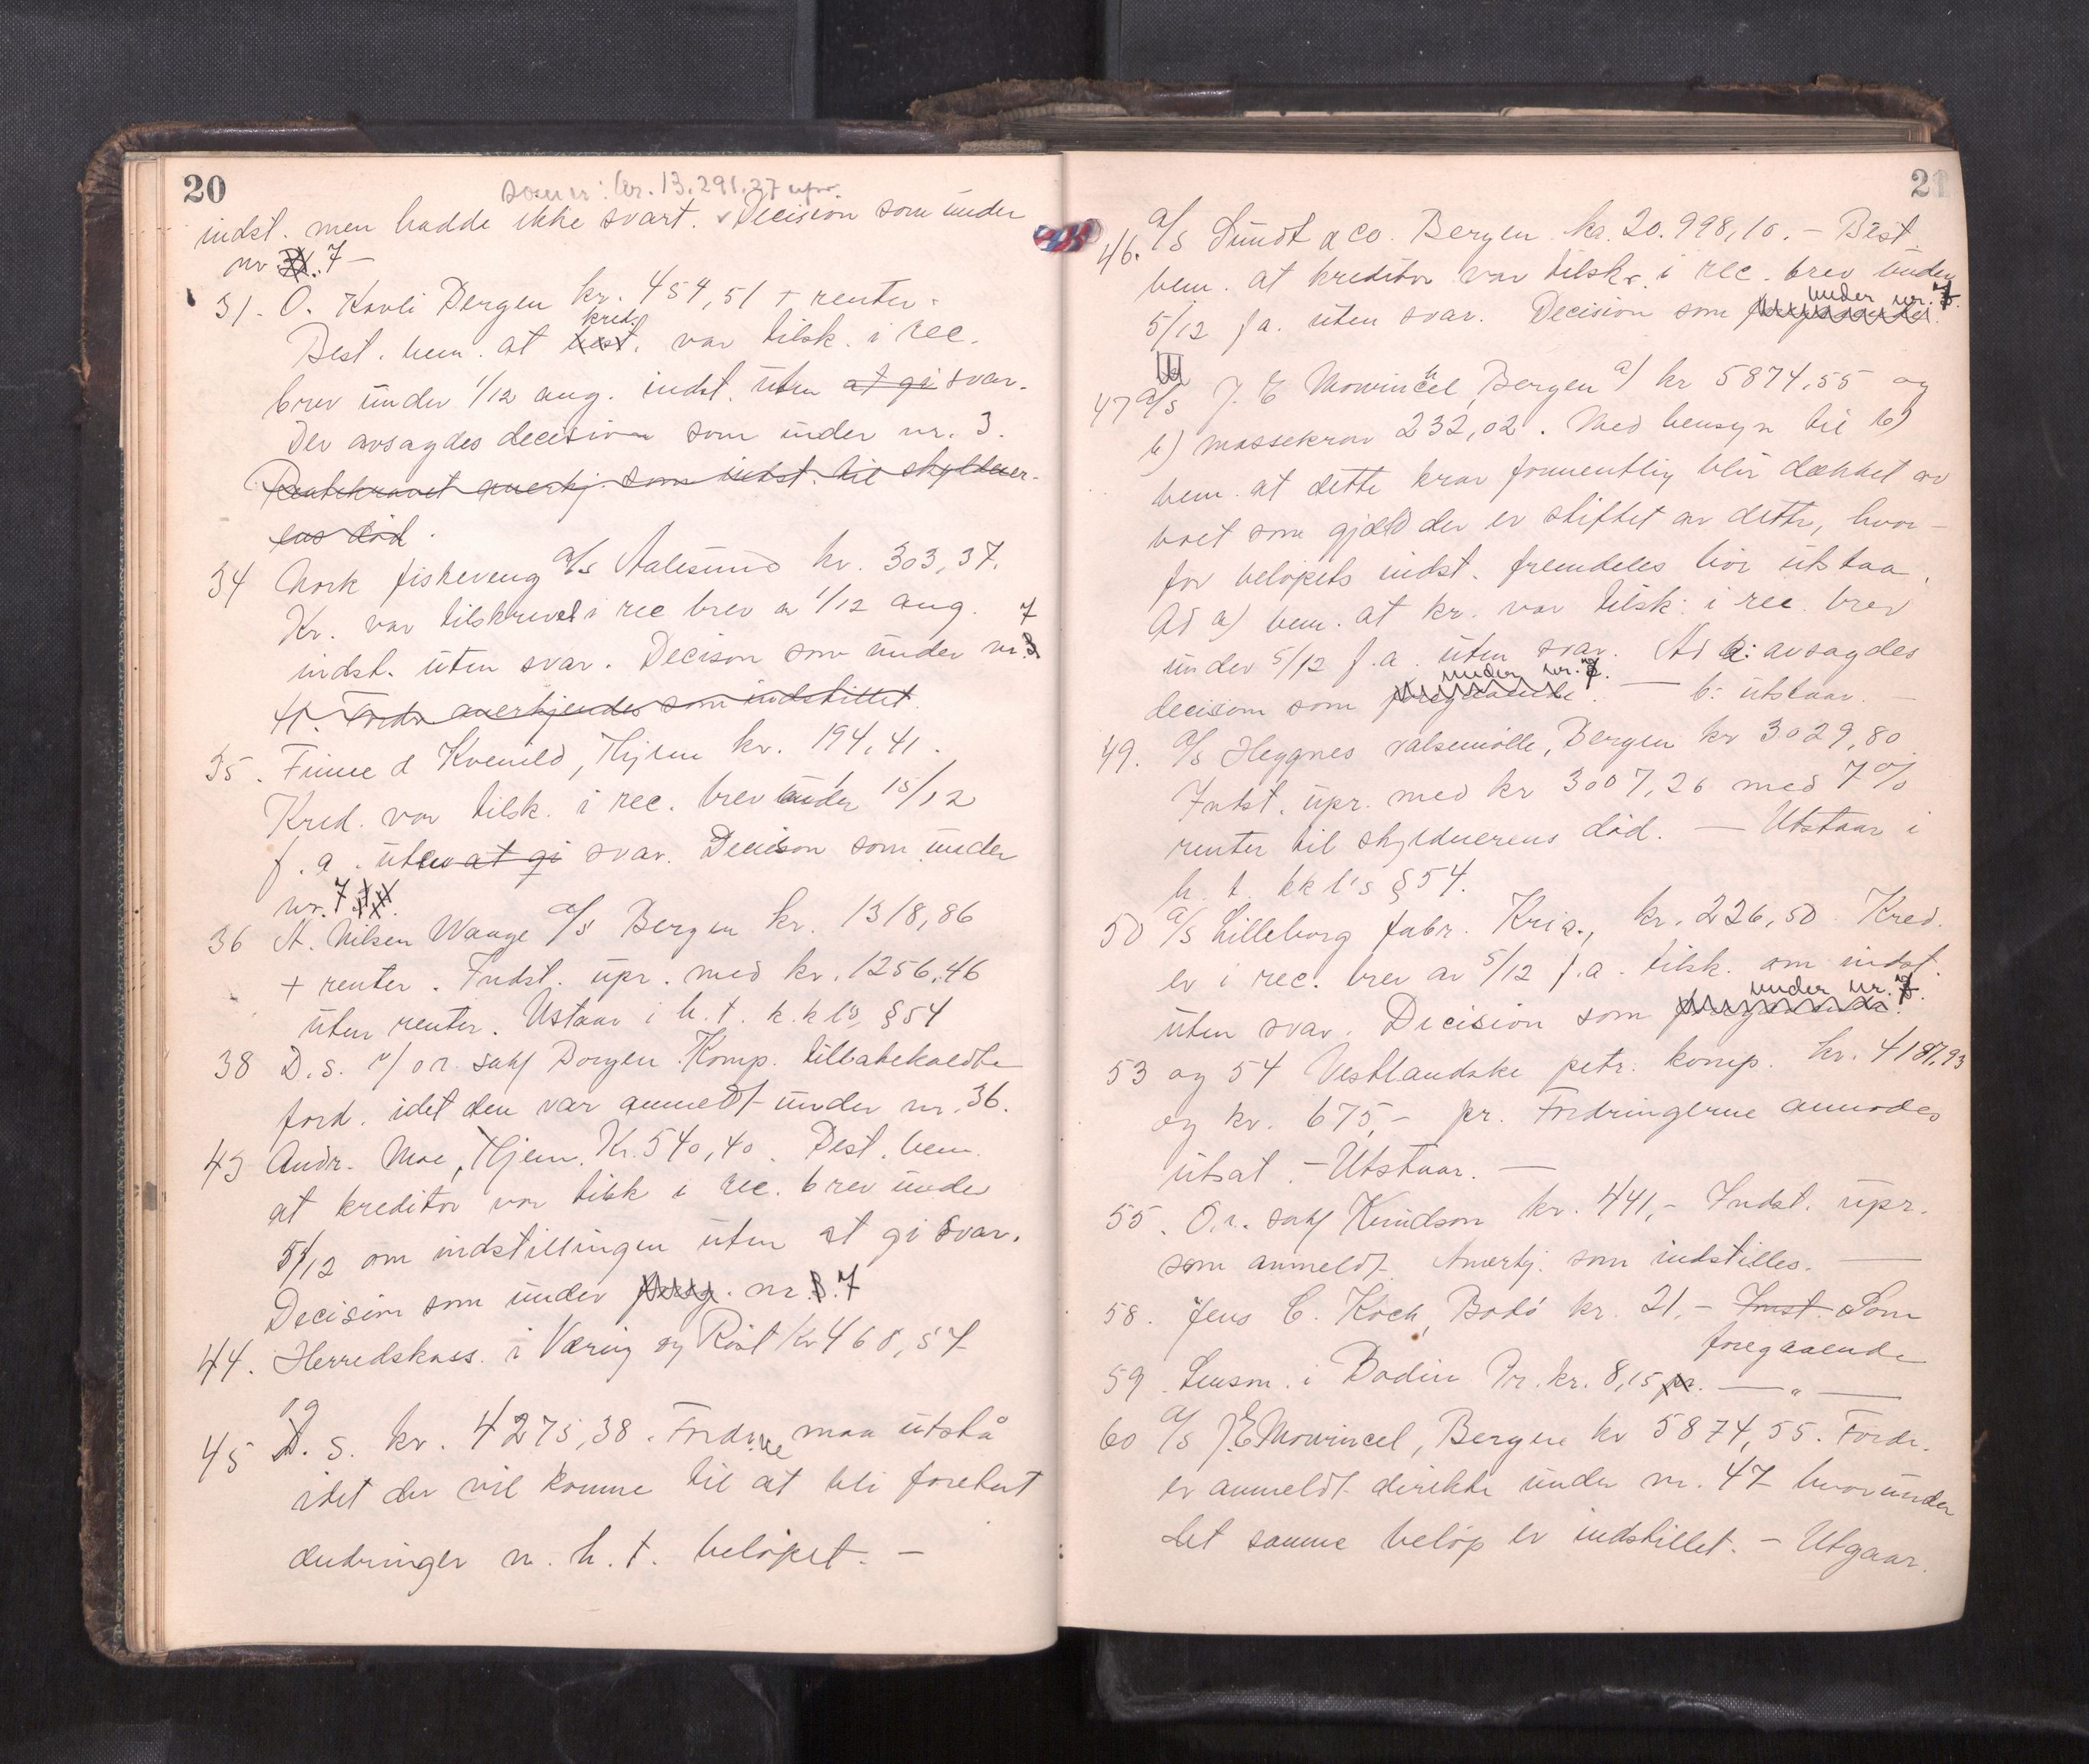 20
kr. 13.291,27 upr.
indst. men hadde ikke svart. Decision som under
nr 7 –
31. O. Kavli Bergen kr. 454,51 + renter.
kred.
Best. bem. at best. var tilsk. i rec.
brev under 1/12 ang. indst. uten at gi svar.
Der avsagdes decision som under nr. 3.
Rentekravet anerkj. som indst. til skyldner-
ens död.
34 Nork fiskeveng a/s Aalesund kr. 303,37.
Kr. var tilskrevet i rec brev av 1/12 ang. 7
indst. uten svar. Decison som under nr. 3
Fordr anerkjendes som indstillet.
35. Finne & Kvenild, Thjem kr. 194,41.
Kred. var tilsk. i rec. brev under 15/12
f. a. uten at gi svar. Decison som under
nr. 7
36 A. Nilsen Waage a/s Bergen kr. 1318,86
+ renter. Indst. upr. med kr. 1256,46
uten renter. Ustaar i h. t. k.k l's § 54
38 D. s. v/ o.r. sakf Dorgen. Komp. tilbakekaldte
ford. idet den var anmeldt under nr. 36.
43 Andr. Moe, Thjem. Kr. 540,40. Best. bem.
at kreditor var tilsk i rec. brev under
5/12 om indstillingen uten at gi svar.
Decision som under foreg. nr. 3. 7
44. Herredskass. i Væröy og Röst kr 468,57
og
45 D. s. kr. 4275,38. Fordr.ne maa utstå
idet der vil komme til at bli foretat
ændringer m. h. t. belöpet. –
21
46. a/s Sundt & Co. Bergen kr. 20.998,10. – Best.
bem. at kreditor var tilskr. i rec. brev under
under nr. 7.
5/12 f a. uten svar. Decision som foregaaende.
47 a/s J. E Mowinckel, Bergen a) kr 5874,55 og
b) massekrav 232,02. Med hensyn til b)
bem. at dette krav formentlig blir dækket av
boet som gjæld der er stiftet av dette, hvor-
for belöpets indst. fremdeles bör utstaa.
Ad a) bem. at kr. var tilsk. i rec. brev
under 5/12 f. a. uten svar. Ad a: avsagdes
under nr. 7.
decision som foregaaende. — b: utstaar. —
49. a/s Heggnes valsemölle, Bergen kr 3029,80
Indst. upr. med kr 3007,26 med 7 %
renter til skyldnerens död. — Utstaar i
h. t. kk l's § 54.
50 a/s Lilleborg fabr. Kria., kr. 226,50. Kred.
er i rec. brev av 5/12 f.a. tilsk. om indst.
under nr. 7.
uten svar. Decision som foregaaende.
53 og 54 Vestlandske petr. komp. kr. 4187,93
og kr. 675,– pr. Fordringerne anmodes
utsat. – Utstaar. —
55. O.r. sakf Knudson kr. 441,– Indst. upr.
som anmeldt. Anerkj. som indstilles. —
58. Jens C. Koch, Bodö kr. 21,– Inst. Som
foregaaende
59. Lensm. i Bodin Pr. kr. 8,15 pr. — „ —
60 a/s J.E. Mowincel, Bergen kr 5874,55. Fordr.
er anmeldt direkte under nr. 47 hvorunder
det samme belöp er indstillet. – Utgaar.